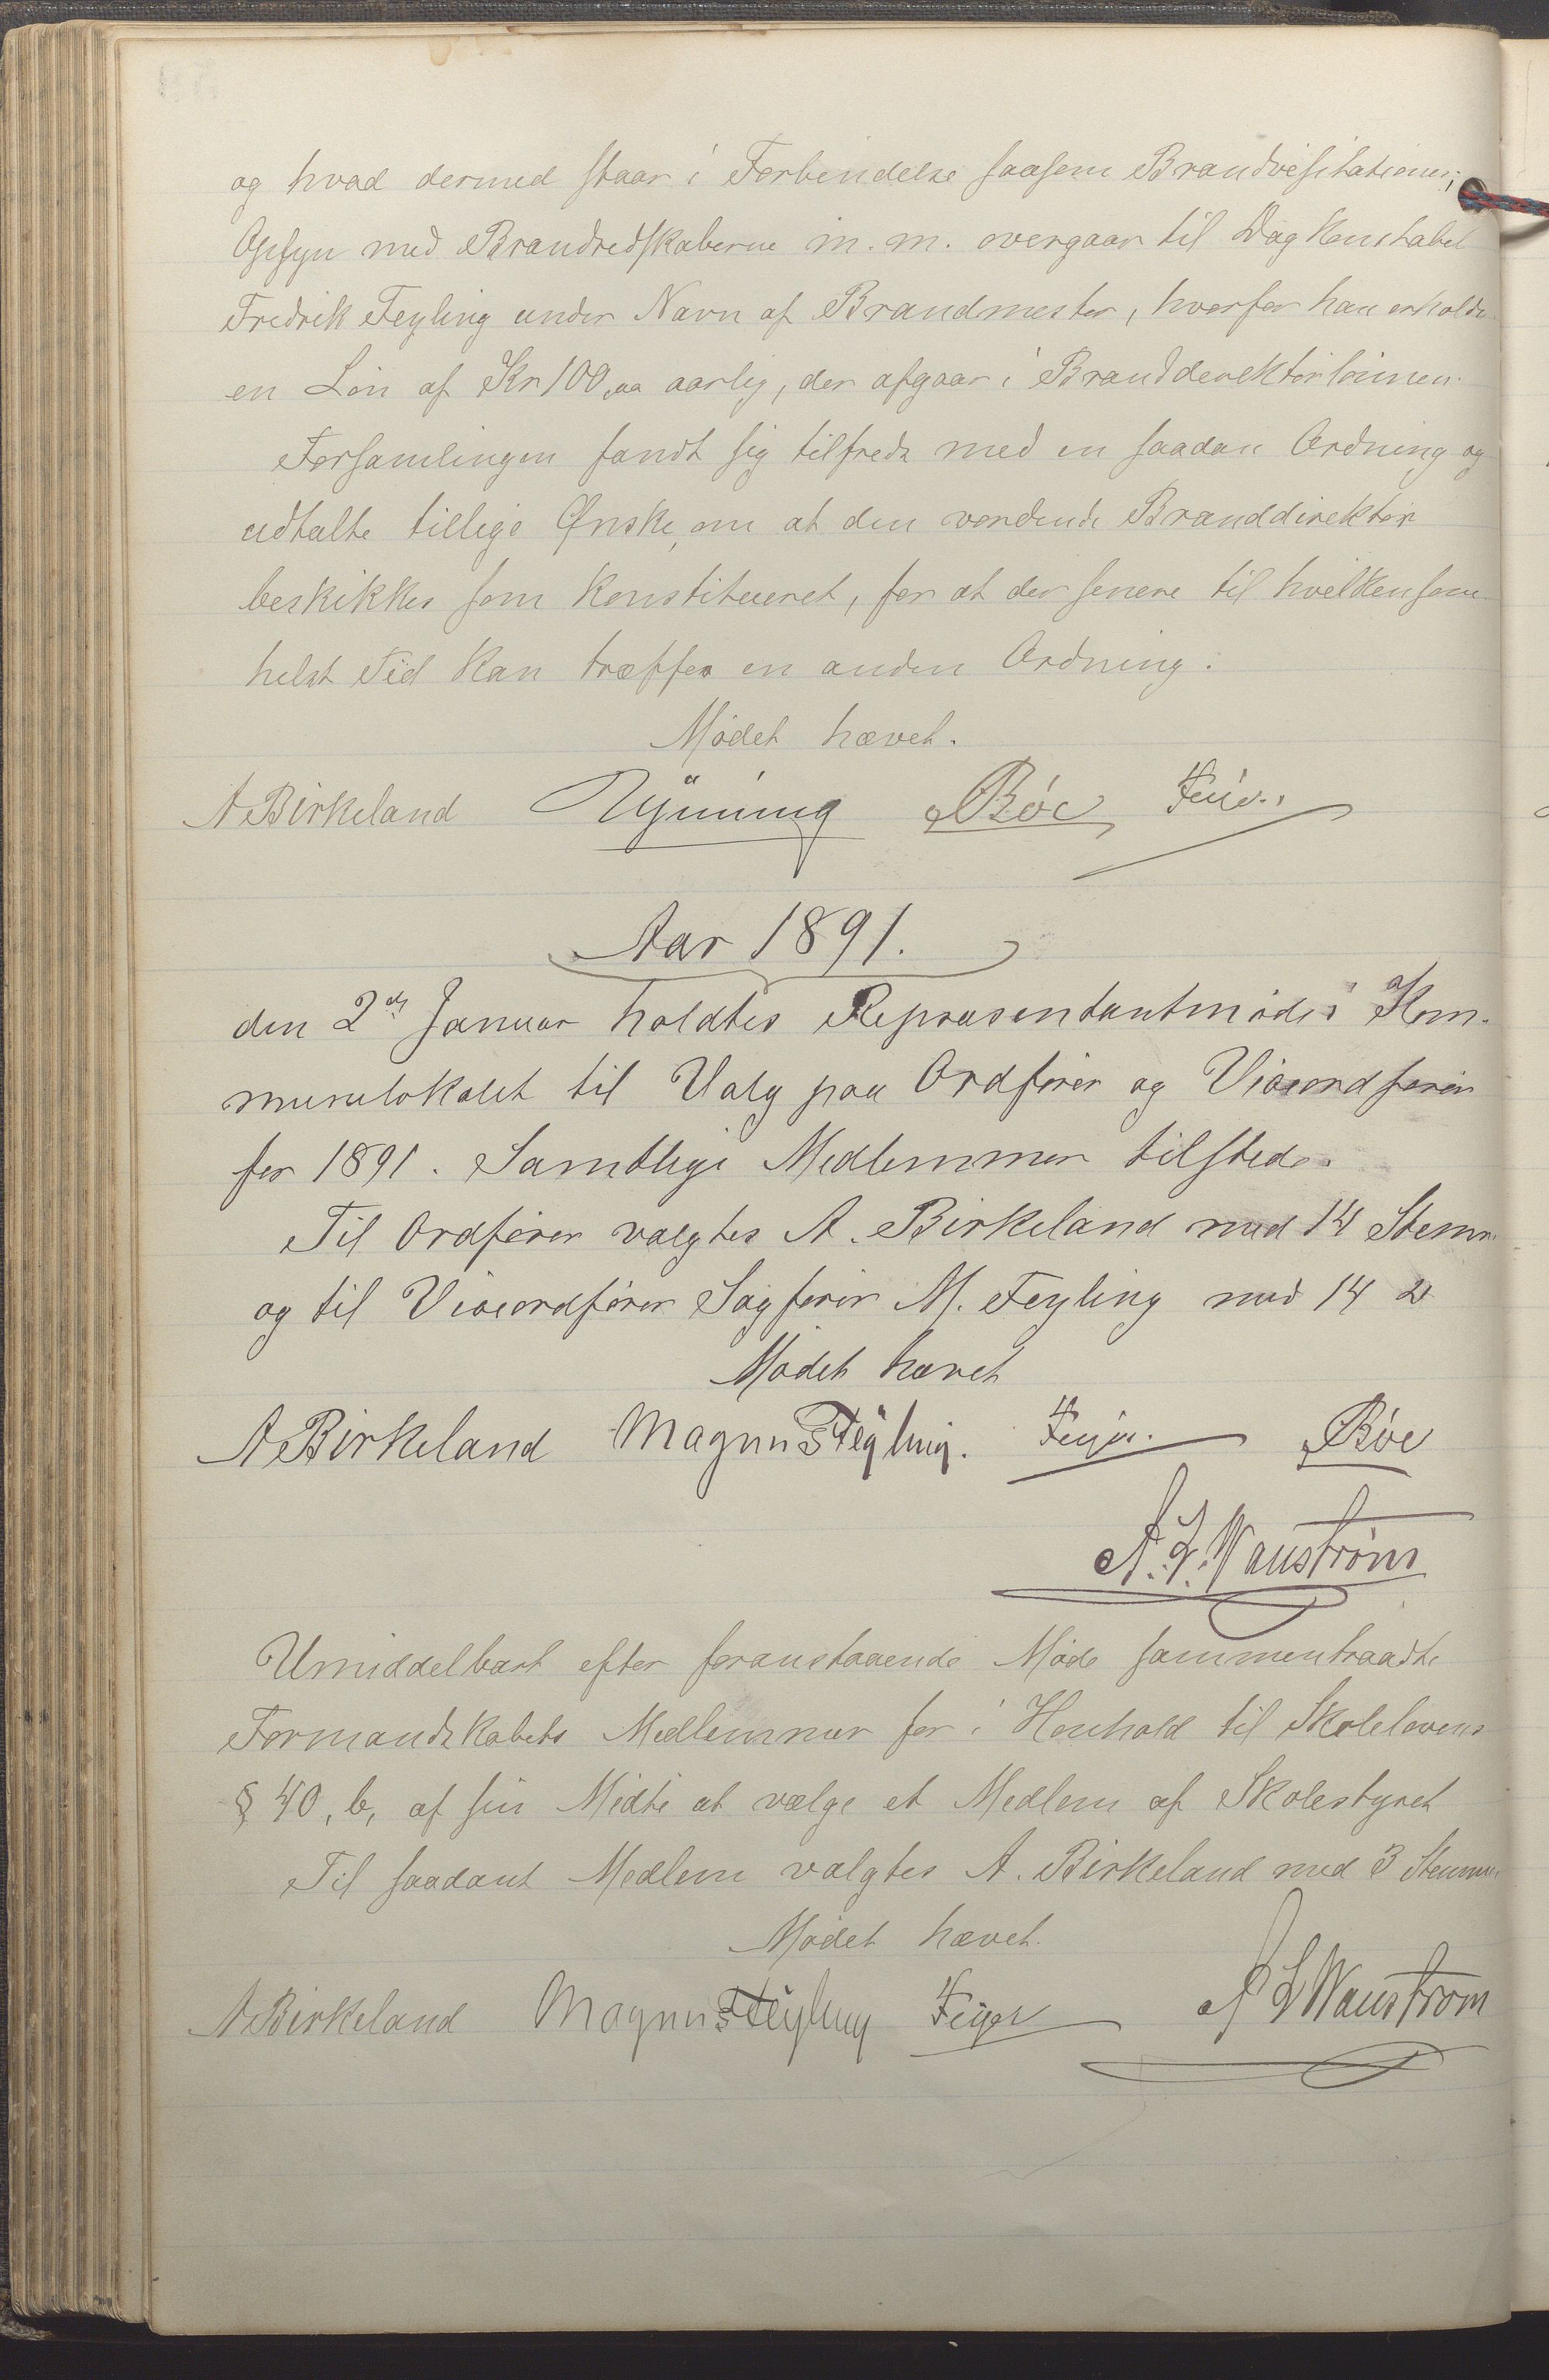 og hvad dermed staar i Forbindelse saasom Brandvisitationer,
Opsyn med Brandredskaberne m. m. overgaar til Dagkonstabel
Fredrik Feyling under Navn af Brandmester, hvorfor han erholder
en Løn af Kr 100,00 aarlig, der afgaar i Branddirektørlønnen.
Forsamlingen fandt sig tilfreds med en saadan Ordning og
udtalte tillige Ønske, om at den vordende Branddirektør
beskikkes som Konstitueret, for at der senere til hvilkensom
helst Tid kan træffes en anden Ordning.
Mødet hævet.
A Birkeland Bøe
Aar 1891.
den 2den Januar holdtes Repræsentantmøde i Kom-
munelokalet til Valg paa Ordfører og Viceordfører
for 1891. Samtlige Medlemmer tilstede.
Til Ordfører valgtes A. Birkeland med 14 Stemr
og til Viceordfører Sagfører M. Feyling med 14
Mødet hævet
A Birkeland Magnus Feÿling. Bøe
A. L. Wanstrøm
Umiddelbart efter foranstaaende Møde sammentraadte
Formandskabets Medlemmer for i Henhold til Skolelovens
§ 40, b, af sin Midte at vælge et Medlem af Skolestyret
Til saadant Medlem valgtes A. Birkeland med 3 Stemmer
Mødet hævet.
A Birkeland Magnus Feÿling A L Wanstrøm